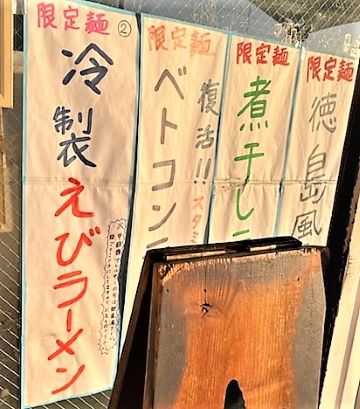 限定麺
②
冷製
えびラーメン
限定麺
復活!!スタ
ベトコン
限定麺
煮干しラ
限定麺
徳島風